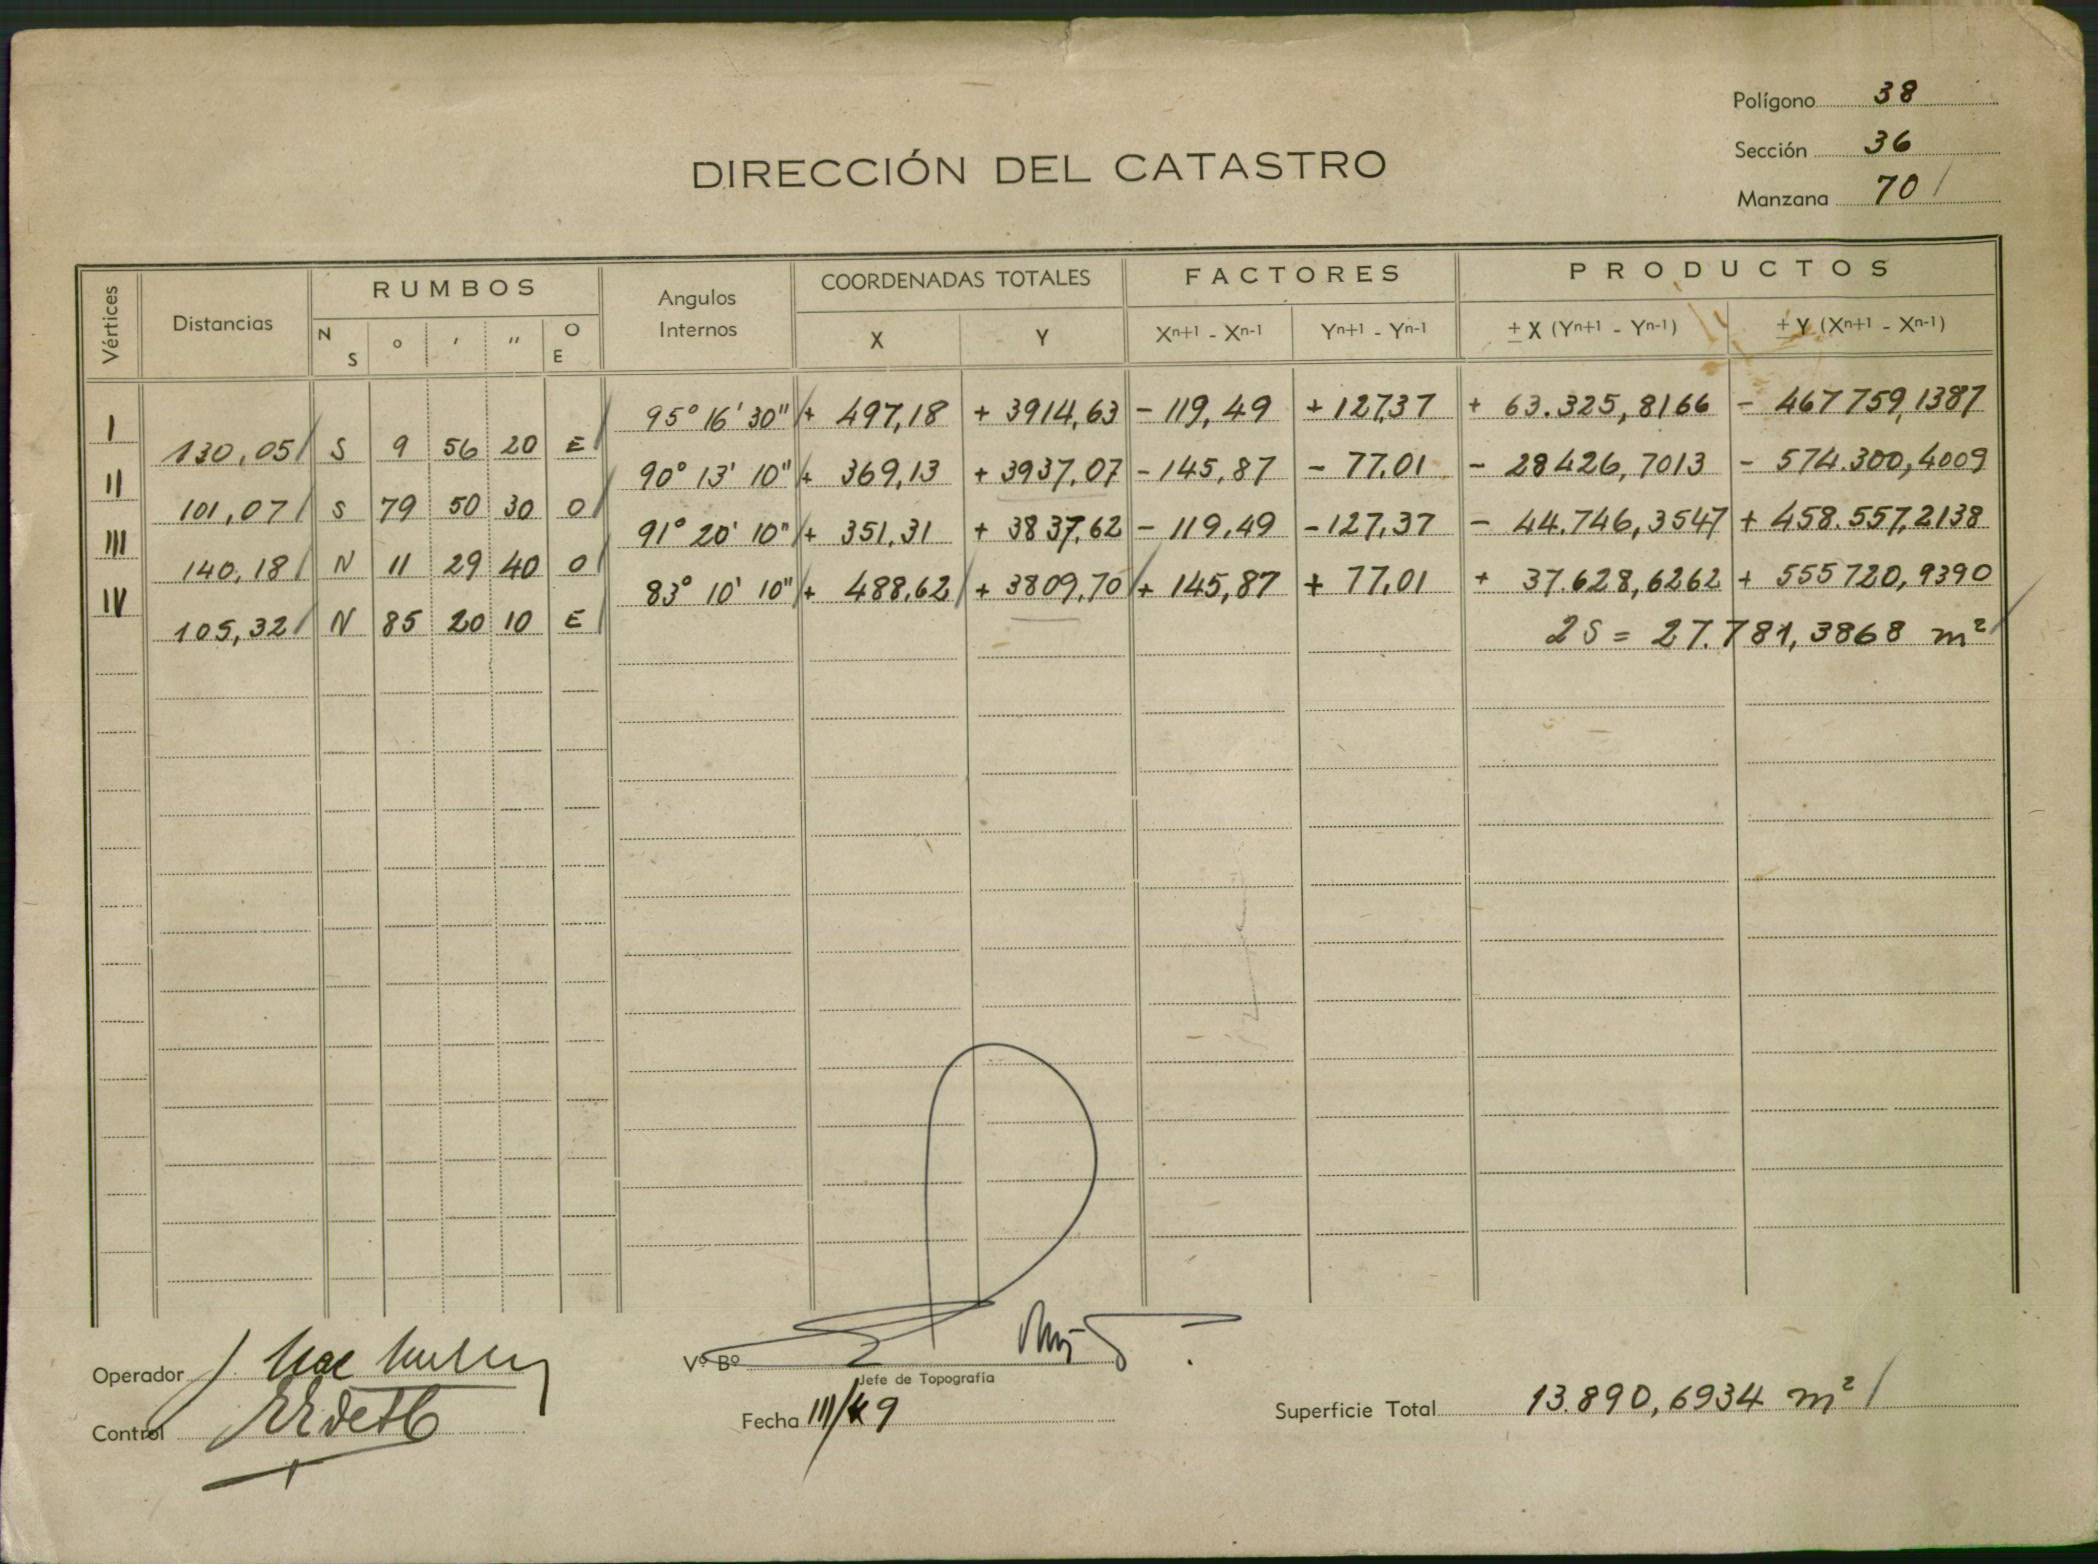 Polígono 38
Sección 36
Manzana 70
DIRECCIÓN DEL CATASTRO
Vértices Distancias RUMBOS Angulos Internos COORDENADAS TOTALES FACTORES PRODUCTOS
N S ° ′ ″ O E X Y Xⁿ⁺¹ - Xⁿ⁻¹ Yⁿ⁺¹ - Yⁿ⁻¹ ± X (Yⁿ⁺¹ - Yⁿ⁻¹) ± Y (Xⁿ⁺¹ - Xⁿ⁻¹)
I 95° 16' 30" + 497,18 + 3914,63 - 119,49 + 127,37 + 63.325,8166 - 467759,1387
130,05 S 9 56 20 E
II 90° 13' 10" + 369,13 + 3937,07 - 145,87 - 77,01 - 28426,7013 - 574.300,4009
101,07 S 79 50 30 O
III 91° 20' 10" + 351,31 + 3837,62 - 119,49 - 127,37 - 44.746,3547 + 458.557,2138
140,18 N 11 29 40 O
IV 83° 10' 10" + 488,62 + 3809,70 + 145,87 + 77,01 + 37.628,6262 + 555720,9390
105,32 N 85 20 10 E
2S = 27.781,3868 m²
Operador
Vº Bº
Jefe de Topografía
Control
Fecha III/49
Superficie Total 13.890,6934 m²